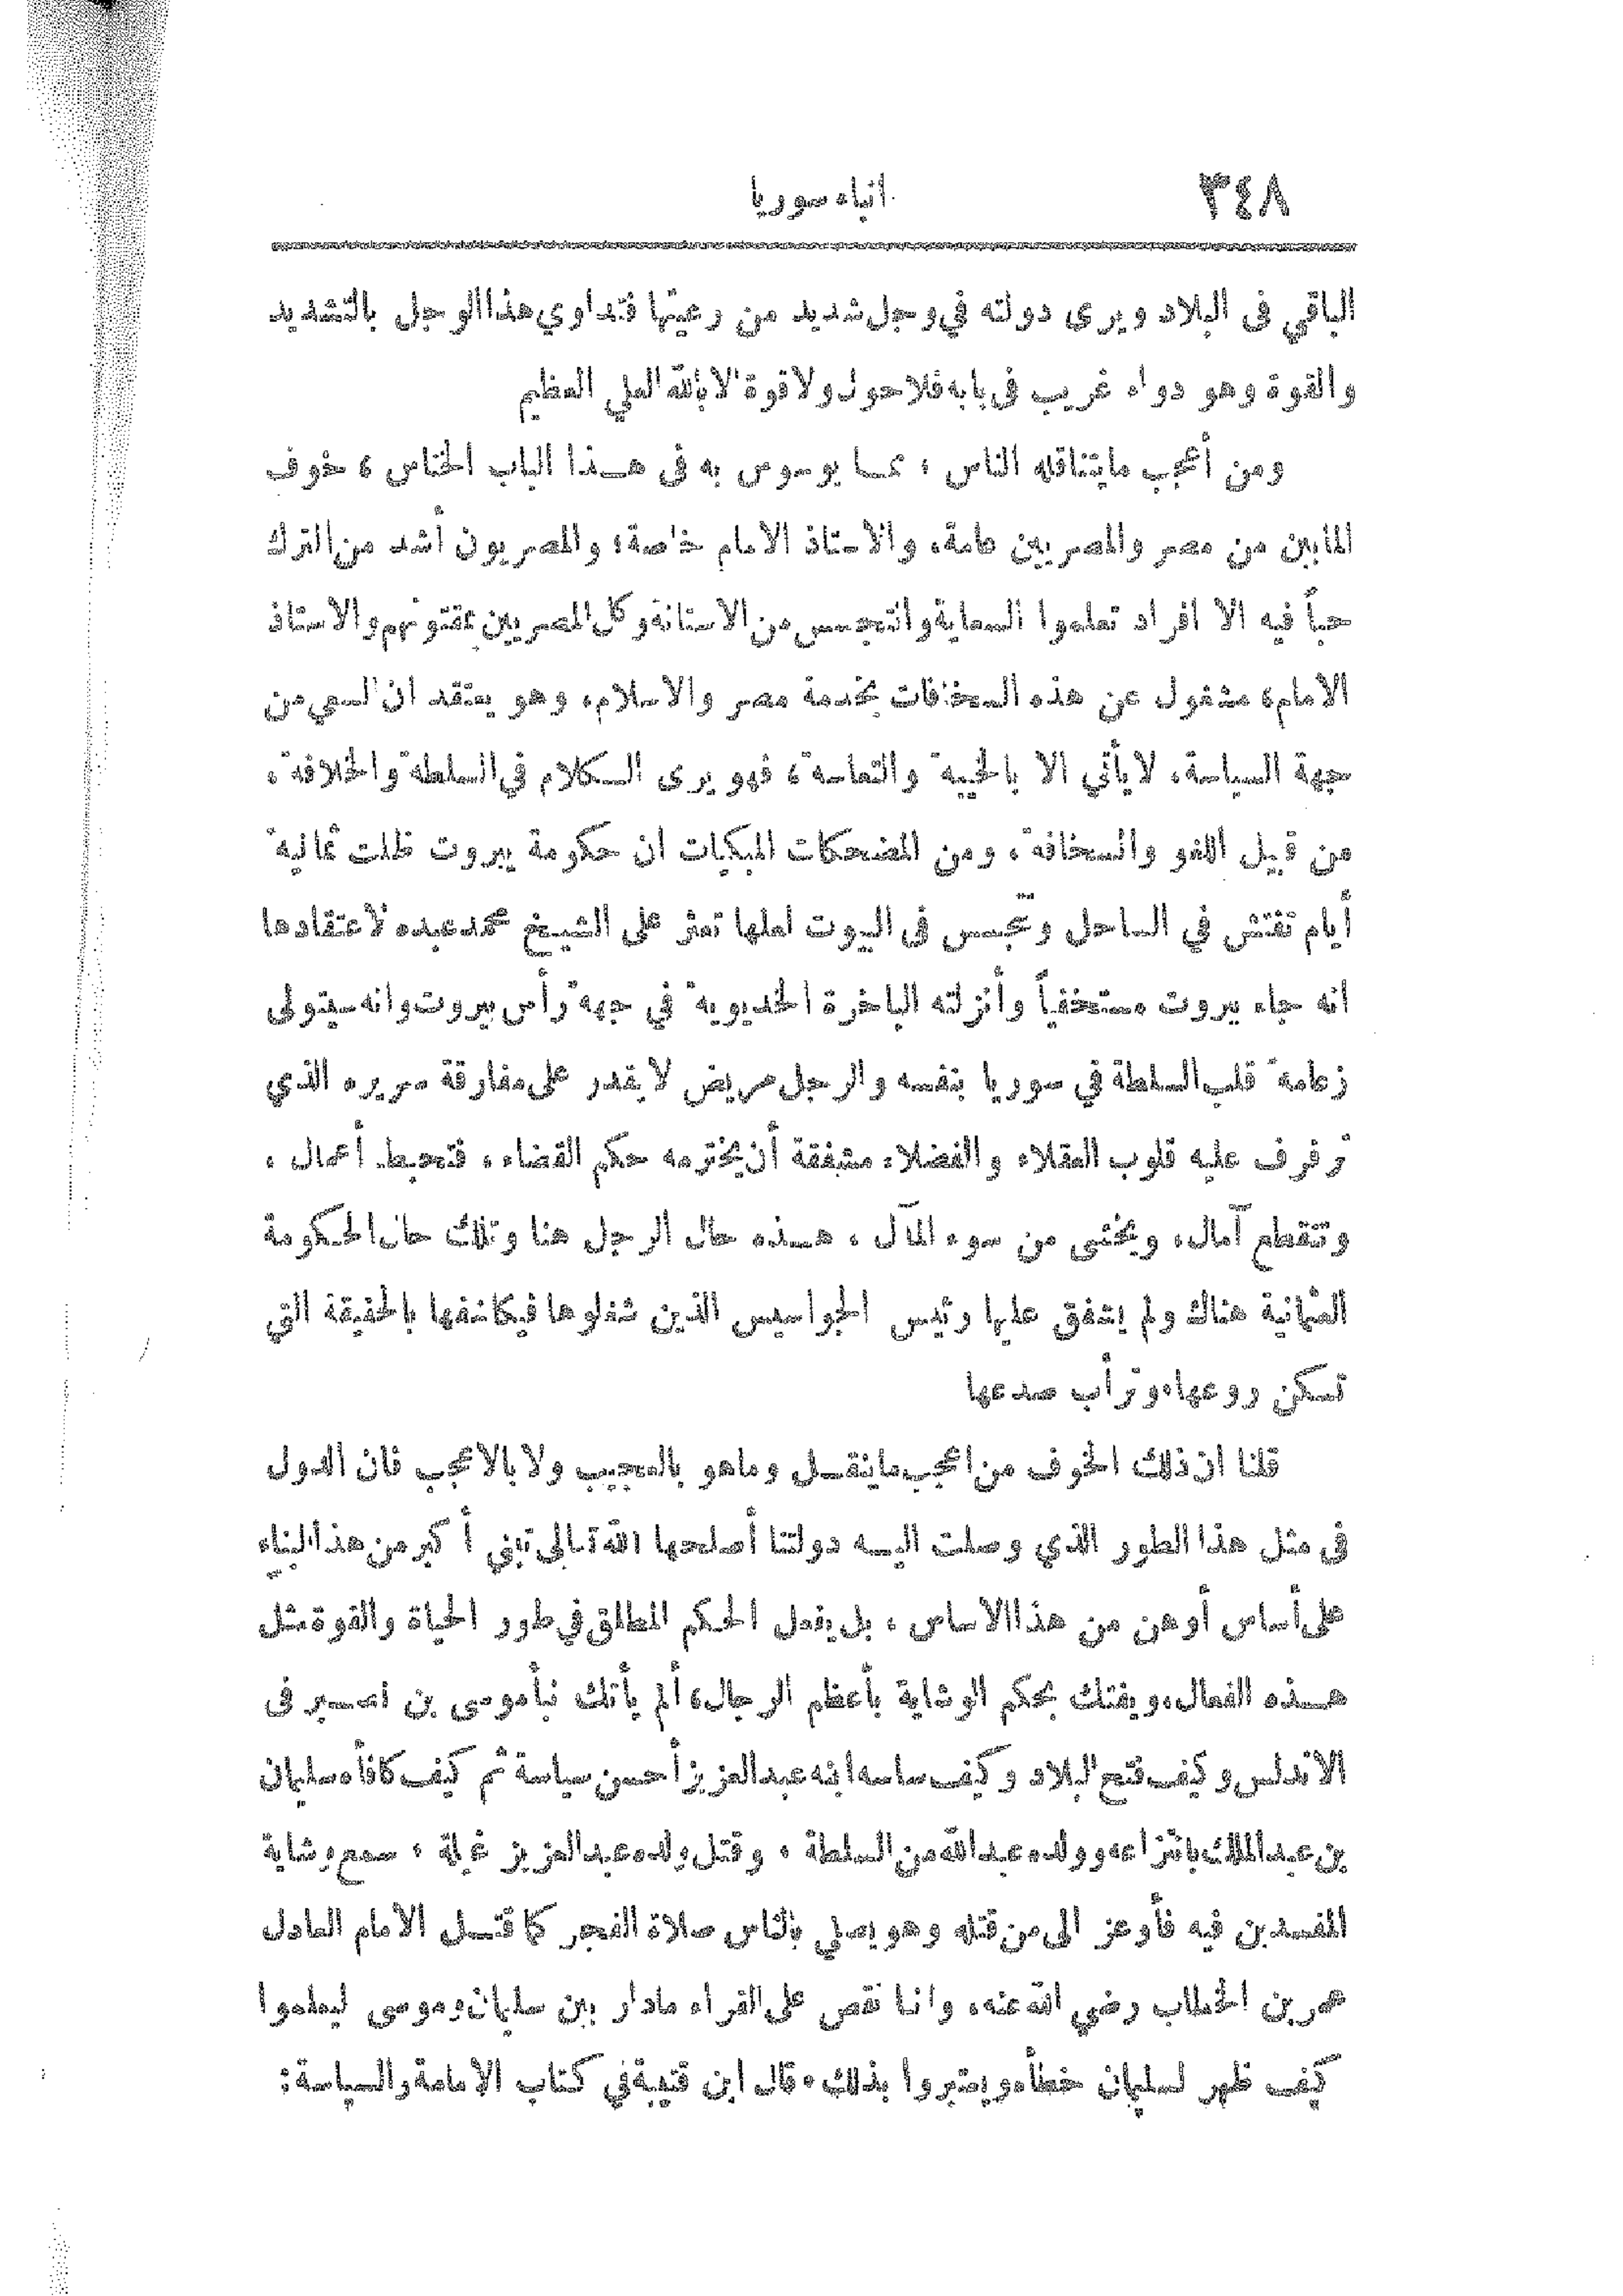 ٣٤٨
انباء سوريا
الباقي فى البلاد ويرى دولته في وجل شديد من رعيتها فتداوي هذا الوجل بالتشديد
والقوة وهو دواء غريب فى بابه فلا حول ولا قوة الا بالله العلي العظيم
ومن أعجب ما يتناقله الناس ، مما يوسوس به فى هذا الباب الخناس ، خوف
المابين من مصر والمصريين عامة، والاستاذ الامام خاصة، والمصريون أشد من الترك
حباً فيه الا افراد تعلموا السعاية والتجسس من الاستانة وكل المصريين يمقتونهم والاستاذ
الامام، مشغول عن هذه السخافات بخدمة مصر والاسلام، وهو يعتقد ان السعي من
جهة السياسة، لا يأتي الا بالخيبة والتعاسة، فهو يرى الكلام في السلطة والخلافة،
من قبيل اللغو والسخافة، ومن المضحكات المبكيات ان حكومة بيروت ظلت ثمانية
أيام تفتش في الساحل وتتجسس فى البيوت لعلها تعثر على الشيخ محمد عبده لاعتقادها
انه جاء بيروت مستخفياً وأنزلته الباخرة الخديوية في جهة رأس بيروت وانه سيتولى
زعامة قلب السلطة في سوريا بنفسه والرجل مريض لا يقدر على مفارقة سريره الذي
ترفرف عليه قلوب العقلاء والفضلاء مشفقة أن يخترمه حكم القضاء، فتحبط أعمال ،
وتنقطع آمال، ويخشى من سوء المآل ، هذه حال الرجل هنا وتلك حال الحكومة
العثمانية هناك ولم يشفق عليها رئيس الجواسيس الذين شغلوها فيكاشفها بالحقيقة التي
تسكن روعها، وترأب صدعها
قلنا ان ذلك الخوف من اعجب ما ينقل وما هو بالعجيب ولا بالاعجب فان الدول
فى مثل هذا الطور الذي وصلت اليه دولتنا أصلحها الله تعالى تبني أكبر من هذا البناء
على أساس أوهن من هذا الاساس ، بل يفعل الحكم المطلق في طور الحياة والقوة مثل
هذه الفعال، ويفتك بحكم الوشاية بأعظم الرجال، ألم يأتك نبأ موسى بن نصير فى
الاندلس وكيف فتح البلاد وكيف ساسه ابنه عبد العزيز أحسن سياسة ثم كيف كافأه سليمان
بن عبد الملك بانتزاعه وولده عبد الله من السلطة ، وقتل ولده عبد العزيز غيلة ، سمع وشاية
المفسدين فيه فأوعز الى من قتله وهو يصلي بالناس صلاة الفجر كما قتل الامام العادل
عمر بن الخطاب رضي الله عنه، وانا نقص على القراء ما دار بين سليمان وموسى ليعلموا
كيف ظهر لسليمان خطأه ويعتبروا بذلك. قال ابن قتيبة في كتاب الامامة والسياسة: